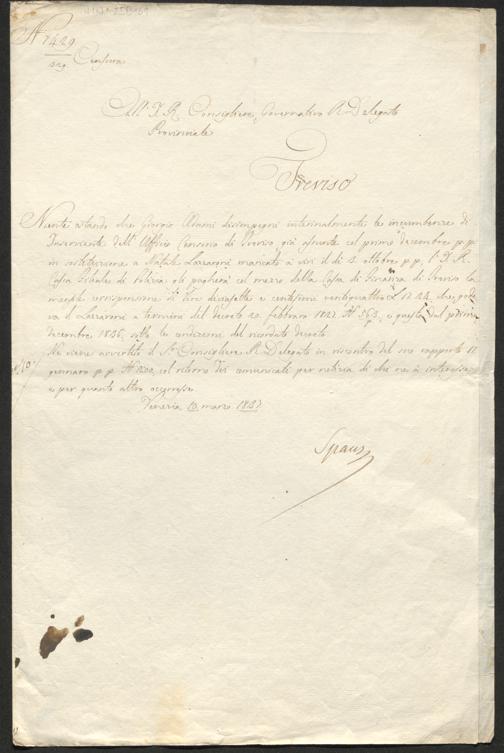 N.° 1429
seg. Censura
All' I. R. Consigliere Governativo R. Delegato
Provinciale
Treviso
Giorgio Adami disimpegni interinalmente le incumbenze di
Inserviente dell' Uffizio Censorio di Treviso, già assunte col primo decembre p.p.
in sostituzione a Natale Lazzaroni mancato a' vivi il dì 3. ottobre p.p. l'I. R.
Cassa di Polizia gli pagherà col mezzo della Cassa di Finanza di Treviso la
corrisponsione di Lire diciasette e centesimi ventiquattro L. 17.24. che
va il Lazzaroni a termini del decreto 20. febbraro 1827. N.° 563. e questa dal primo
decembre 1836. sotto le condizioni del ricordato decreto.
Ne viene avvertito il Sig.r Consigliere R. Delegato in riscontro del suo rapporto 17.
gennaro p.p. col ritorno dei comunicati per notizia di chi ne à interesse
e per quanto altro occorresse.
Venezia 10. marzo 1837.
Spaur